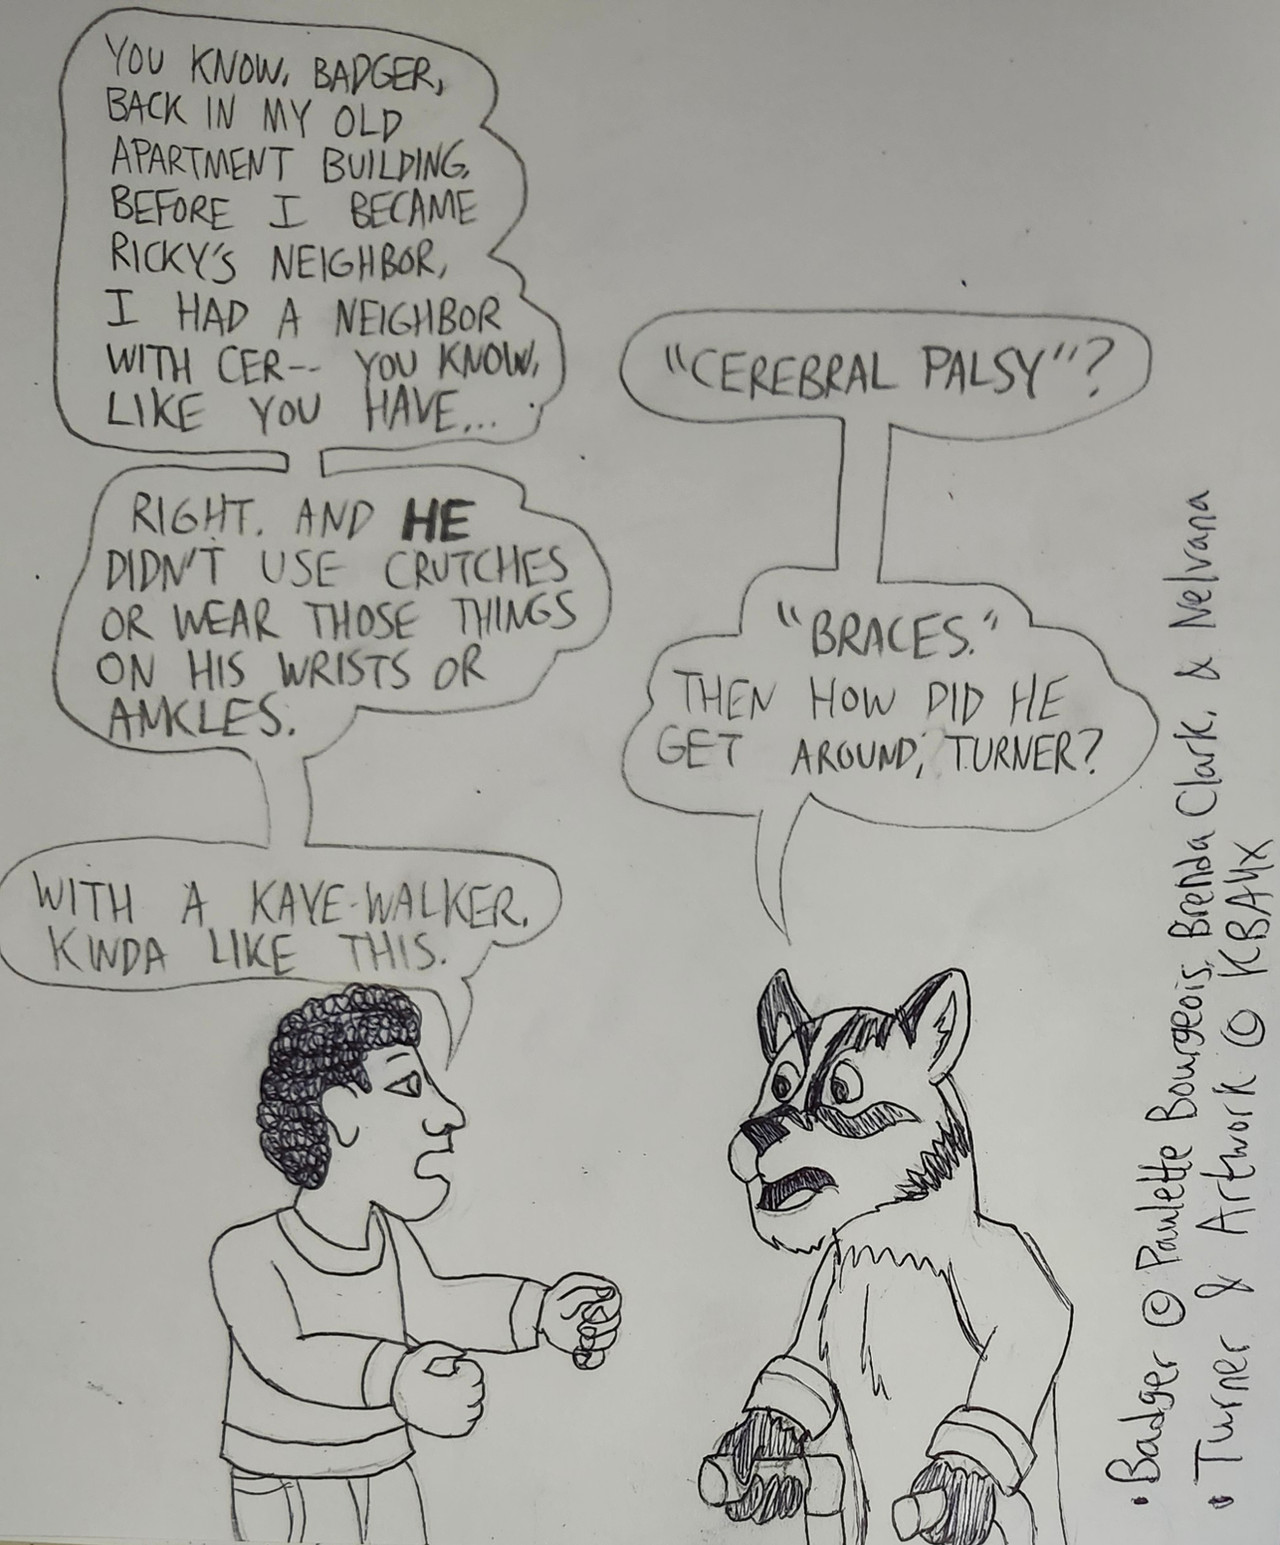 YOU KNOW, BADGER,
BACK IN MY OLD
APARTMENT BUILDING,
BEFORE I BECAME
RICKY'S NEIGHBOR,
I HAD A NEIGHBOR
WITH CER-- YOU KNOW,
LIKE YOU HAVE...
"CEREBRAL PALSY"?
RIGHT. AND HE
DIDN'T USE CRUTCHES
OR WEAR THOSE THINGS
ON HIS WRISTS OR
ANKLES.
"BRACES."
THEN HOW DID HE
GET AROUND, TURNER?
WITH A KAYE-WALKER.
KINDA LIKE THIS.
• Badger © Paulette Bourgeois, Brenda Clark, & Nelvana
• Turner & Artwork © KBAYX